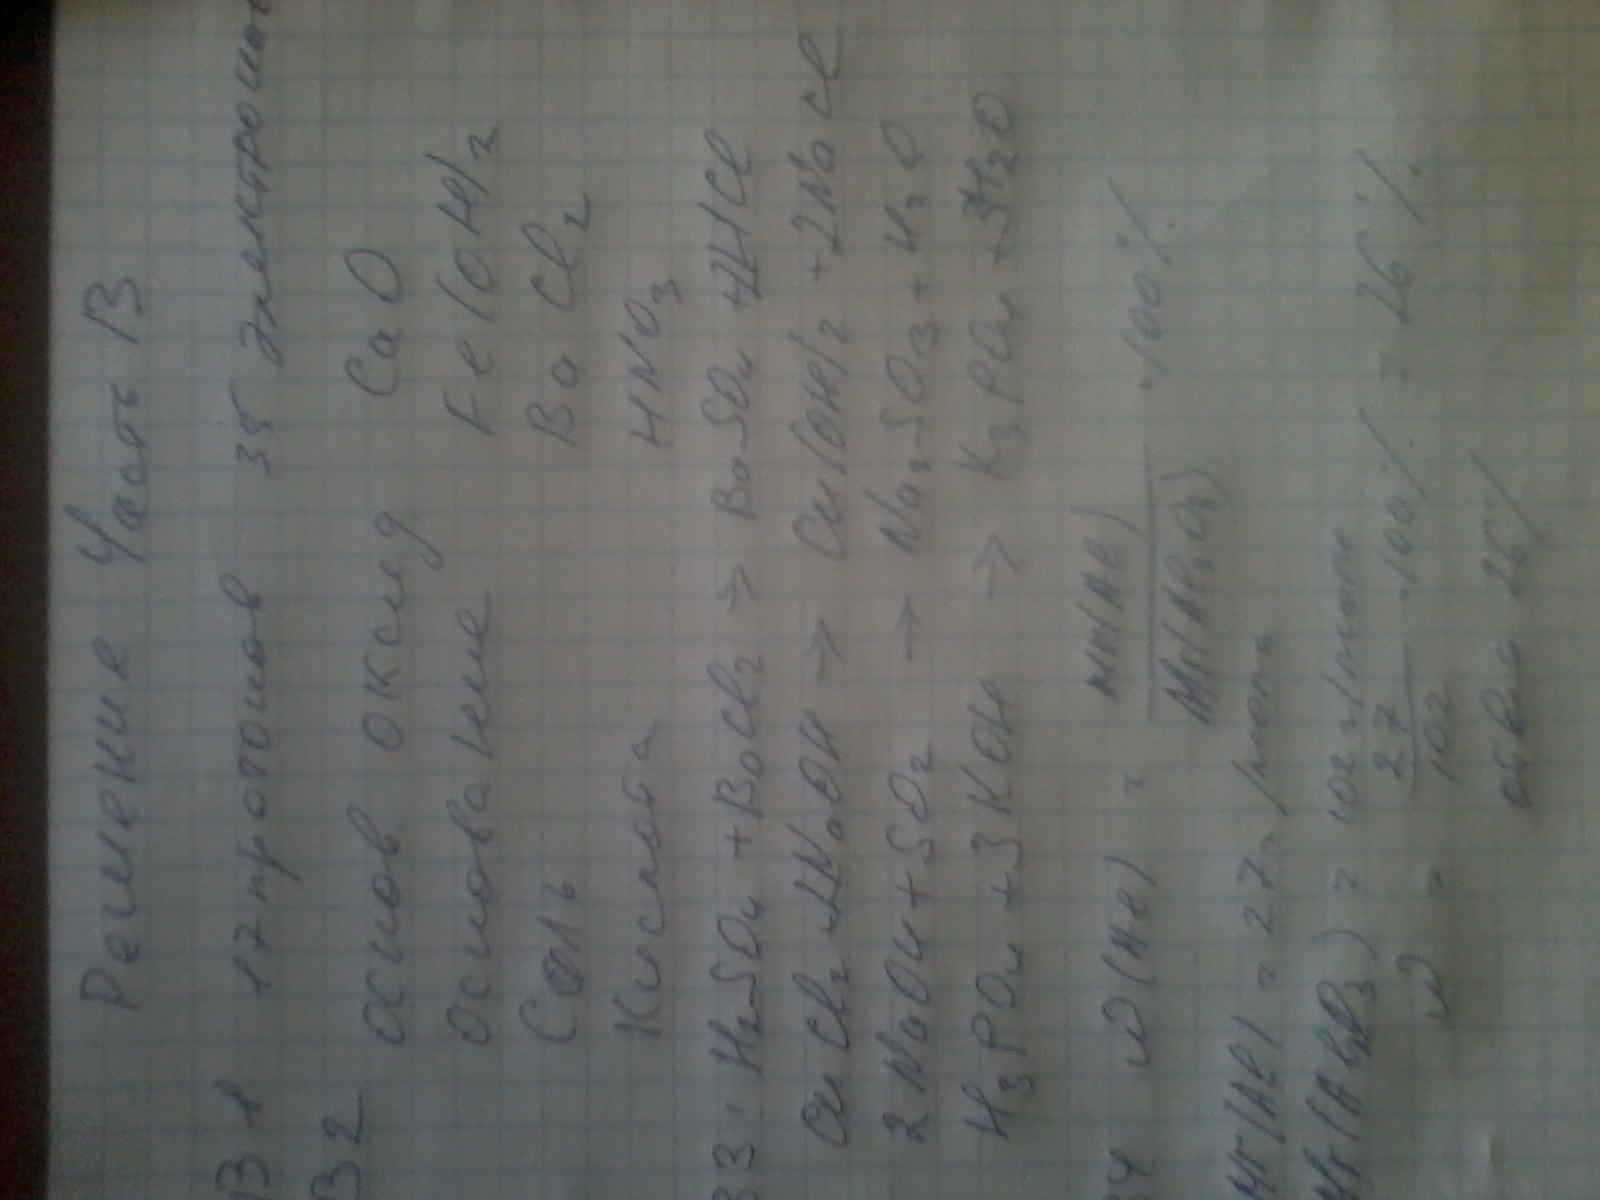 Решение Часть В
В 1 17 протонов 35 электронов
В 2 основ оксид CaO
Основание Fe(OH)2
Соль BaCl2
Кислота HNO3
В3: H2SO4 + BaCl2 → BaSO4 + 2HCl
CuCl2 + 2NaOH → Cu(OH)2 + 2NaCl
2NaOH + SO2 → Na2SO3 + H2O
H3PO4 + 3KOH → K3PO4 + 3H2O
В4 ω(Al) = Mr(Al) / Mr(Al2O3) · 100%
Mr(Al) = 27 г/моль
Mr(Al2O3) = 102 г/моль
ω = 27 / 102 · 100% = 26%
ответ 26%